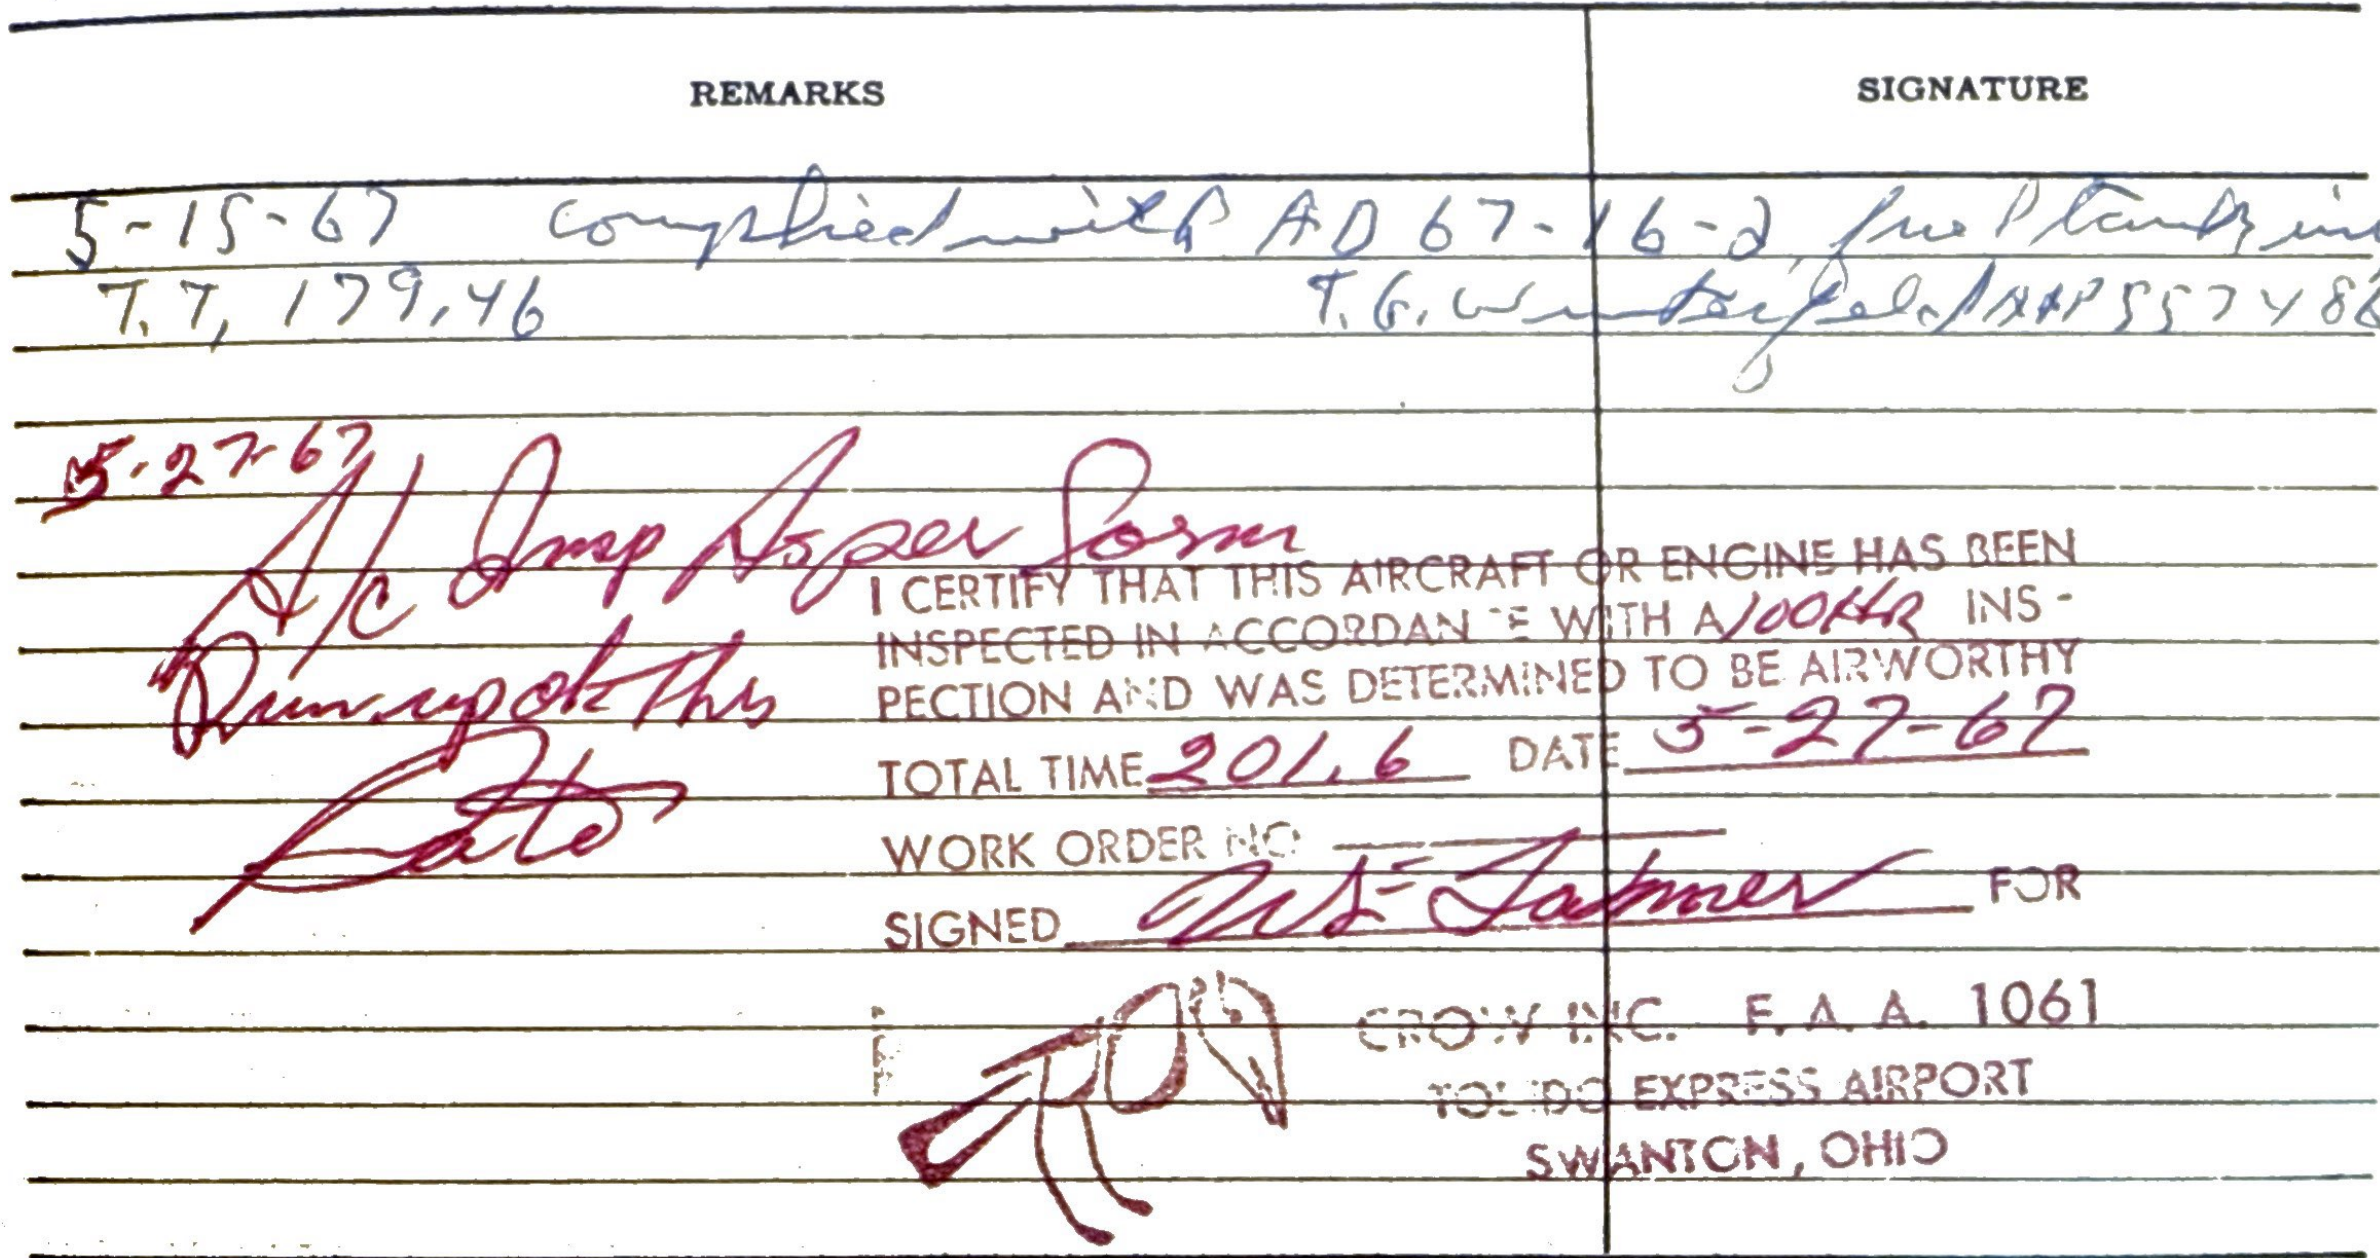 REMARKS SIGNATURE
5-15-67 complied with AD 67-16-2, fuel tank in
T.T. 179.46 T.G. Winterfeld A&P 557486
5-27-67
A/c Insp As per Form
I CERTIFY THAT THIS AIRCRAFT OR ENGINE HAS BEEN
INSPECTED IN ACCORDANCE WITH A 100HR INS-
PECTION AND WAS DETERMINED TO BE AIRWORTHY
Run up ok this
Date
TOTAL TIME 201.6 DATE 5-27-67
WORK ORDER NO
SIGNED FOR
CROW INC. F. A. A. 1061
TOLEDO EXPRESS AIRPORT
SWANTON, OHIO